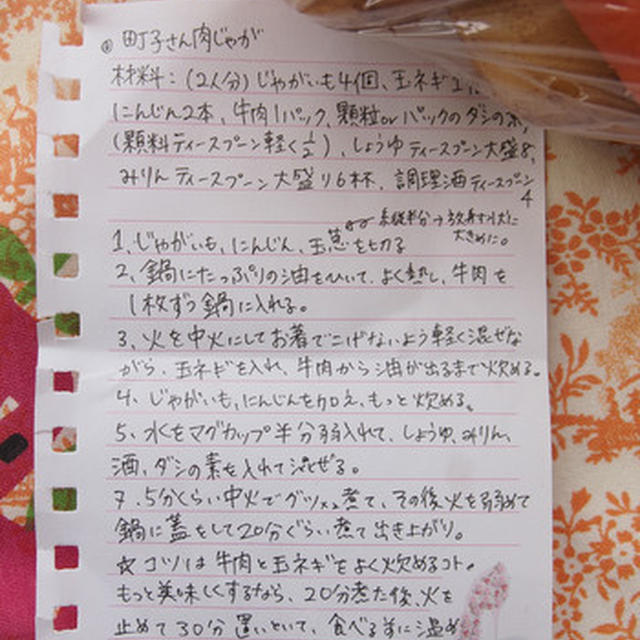 ◎ 町子さん肉じゃが
材料：(2人分)じゃがいも4個、玉ネギ
にんじん2本、牛肉1パック、顆粒orパックのダシの素、
(顆料ティースプーン軽く½)、しょうゆティースプーン大盛8、
みりんティースプーン大盛り6杯、調理酒ティースプーン
4
大きめに。
1、じゃがいも、にんじん、玉葱を切る
2、鍋にたっぷりの油をひいて、よく熱し、牛肉を
1枚ずつ鍋に入れる。
3、火を中火にしてお箸でこげないよう軽く混ぜな
がら、玉ネギを入れ、牛肉から油が出るまで炒める。
4、じゃがいも、にんじんを加え、もっと炒める。
5、水をマグカップ半分弱入れて、しょうゆ、みりん、
酒、ダシの素を入れて混ぜる。
7.5分くらい中火でグツグツ煮て、その後火を弱めて
鍋に蓋をして20分ぐらい煮て出き上がり。
☆コツは牛肉と玉ネギをよく炒めるコト。
もっと美味しくするなら、20分煮た後、火を
止めて30分置いといて、食べる前に温め